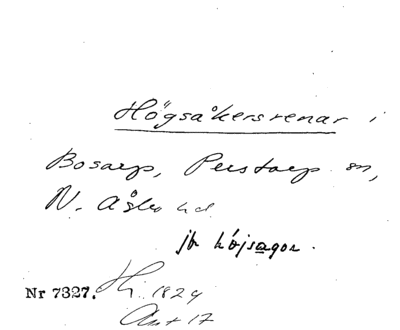 Högsåkersrenar i
Bosarp, Perstorp sn,
N. Åsbo hd
jfr höjsagor.
Nr 7327. Hj. 1824
17